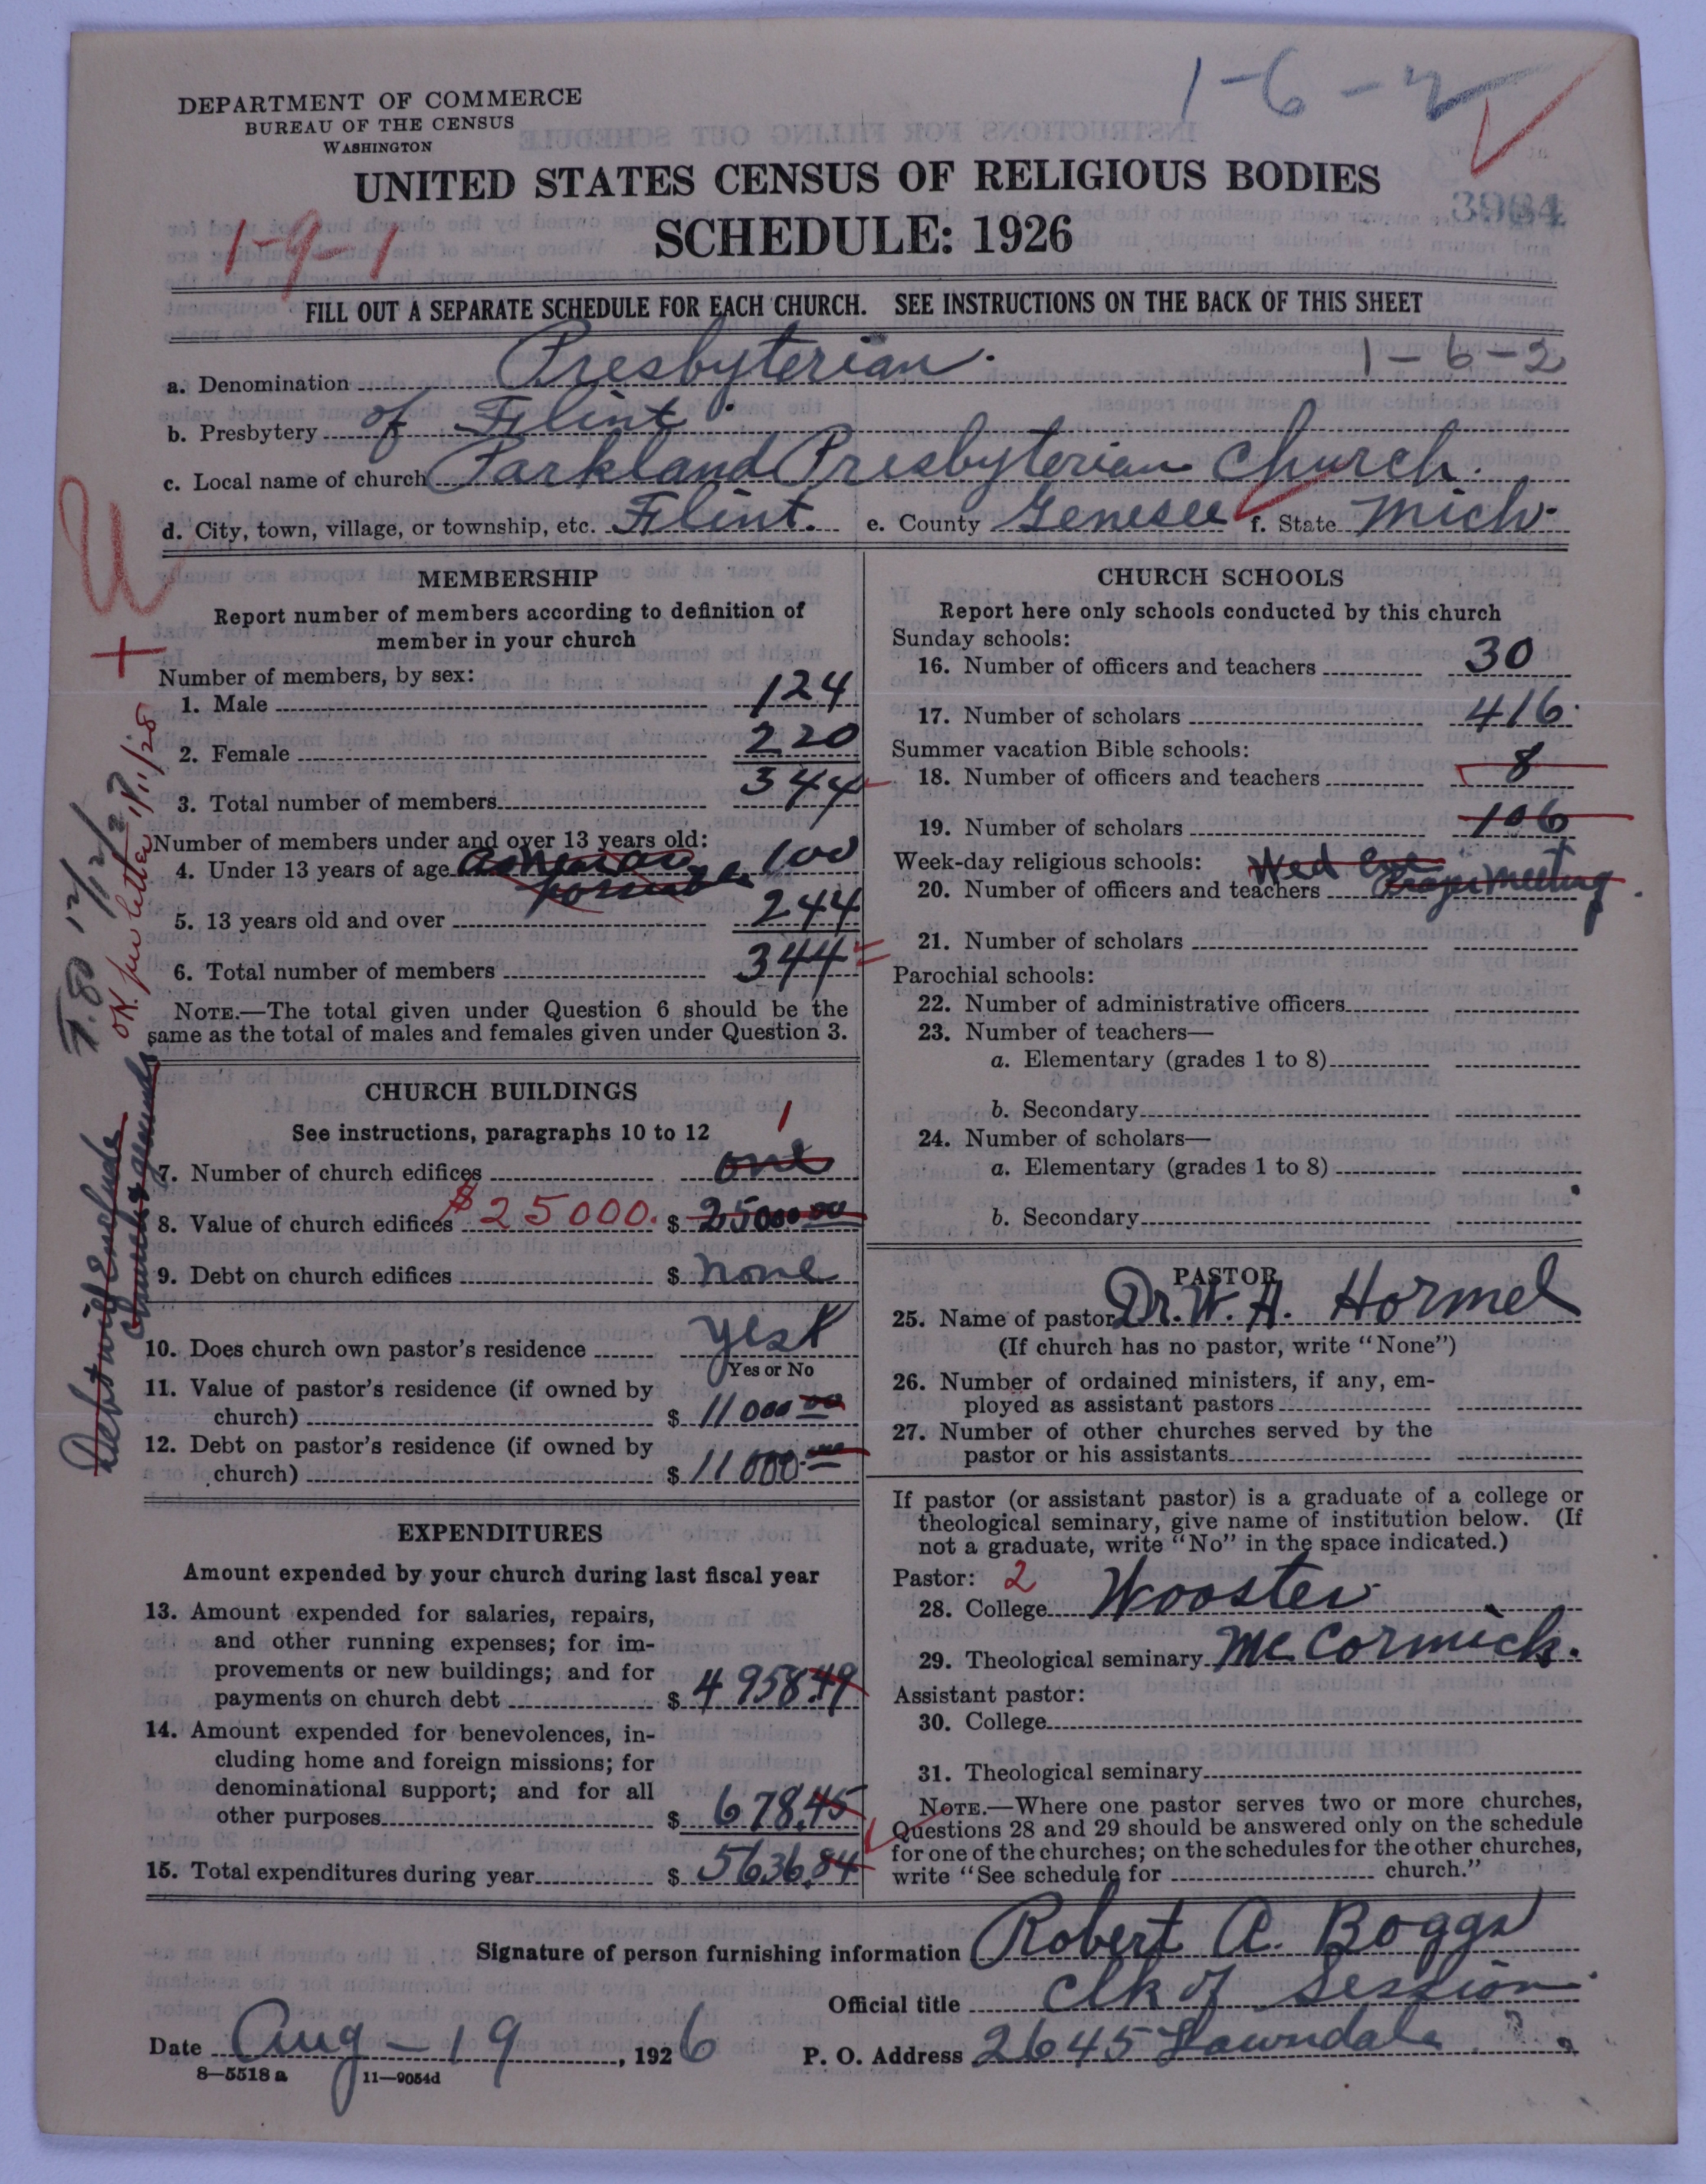 1-6-2
DEPARTMENT OF COMMERCE
BUREAU OF THE CENSUS
WASHINGTON
UNITED STATES CENSUS OF RELIGIOUS BODIES
SCHEDULE: 1926
1-9-1
FILL OUT A SEPARATE SCHEDULE FOR EACH CHURCH. SEE INSTRUCTIONS ON THE BACK OF THIS SHEET
a. Denomination Presbyterian. 1-6-2
b. Presbytery of Flint.
c. Local name of church Parkland Presbyterian Church.
d. City, town, village, or township, etc. Flint. e. County Genesee f. State Mich.
MEMBERSHIP
Report number of members according to definition of
member in your church
Number of members, by sex:
1. Male 124
2. Female 220
3. Total number of members 344
Number of members under and over 13 years old:
4. Under 13 years of age 100
5. 13 years old and over 244
6. Total number of members 344
NOTE.—The total given under Question 6 should be the
same as the total of males and females given under Question 3.
T.80 12/12/27
OK per letter 1/11/28
CHURCH BUILDINGS
See instructions, paragraphs 10 to 12
1
7. Number of church edifices one
8. Value of church edifices $25000. $ 25000.00
9. Debt on church edifices $ none
10. Does church own pastor's residence yes
Yes or No
11. Value of pastor's residence (if owned by
church) $ 11000.00
12. Debt on pastor's residence (if owned by
church) $ 11000.00
EXPENDITURES
Amount expended by your church during last fiscal year
13. Amount expended for salaries, repairs,
and other running expenses; for im-
provements or new buildings; and for
payments on church debt $ 4958.49
14. Amount expended for benevolences, in-
cluding home and foreign missions; for
denominational support; and for all
other purposes $ 678.45
15. Total expenditures during year $ 5636.84
CHURCH SCHOOLS
Report here only schools conducted by this church
Sunday schools:
16. Number of officers and teachers 30
17. Number of scholars 416
Summer vacation Bible schools:
18. Number of officers and teachers 8
19. Number of scholars 106
Week-day religious schools: Wed Eve
20. Number of officers and teachers Prayer meeting
21. Number of scholars
Parochial schools:
22. Number of administrative officers
23. Number of teachers—
a. Elementary (grades 1 to 8)
b. Secondary
24. Number of scholars—
a. Elementary (grades 1 to 8)
b. Secondary
PASTOR
25. Name of pastor Dr. W. A. Hormel
(If church has no pastor, write "None")
26. Number of ordained ministers, if any, em-
ployed as assistant pastors
27. Number of other churches served by the
pastor or his assistants
If pastor (or assistant pastor) is a graduate of a college or
theological seminary, give name of institution below. (If
not a graduate, write "No" in the space indicated.)
Pastor: 2
28. College Wooster
29. Theological seminary McCormick.
Assistant pastor:
30. College
31. Theological seminary
NOTE.—Where one pastor serves two or more churches,
Questions 28 and 29 should be answered only on the schedule
for one of the churches; on the schedules for the other churches,
write "See schedule for church."
Signature of person furnishing information Robert A. Boggs
Official title Clk of Session
Date Aug - 19, 1926 P. O. Address 2645 Lawndale
8—5518 a 11—9054d